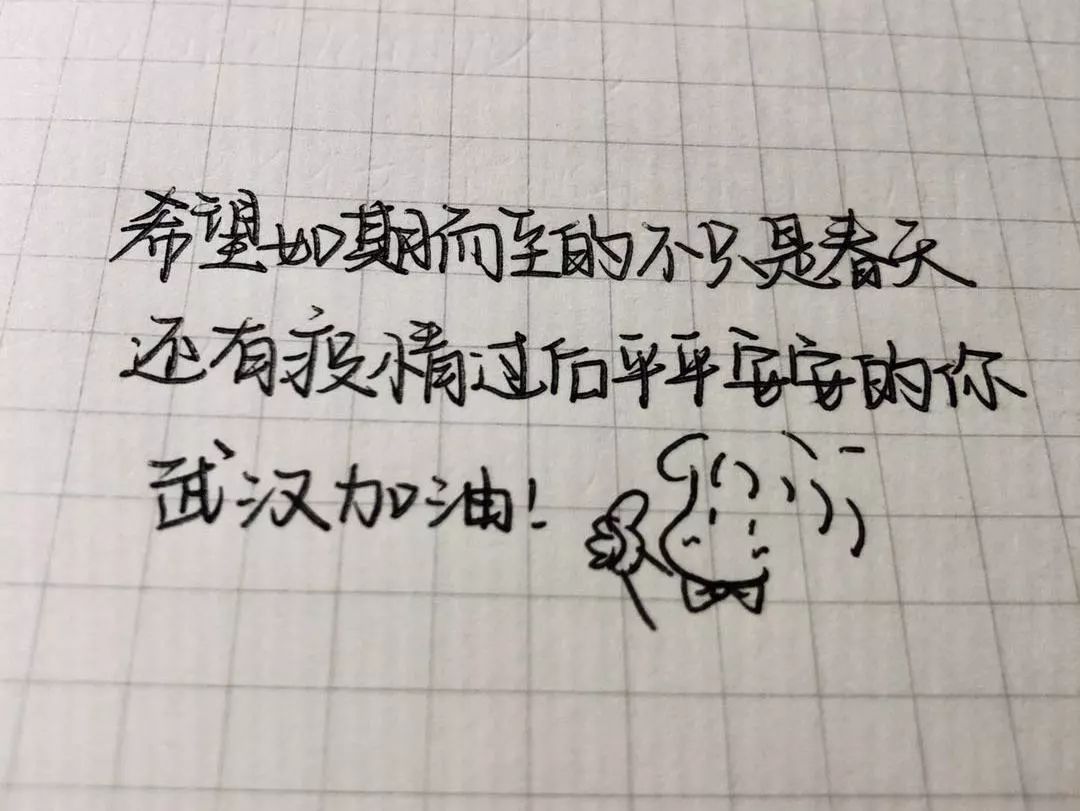 希望如期而至的不只是春天
还有疫情过后平平安安的你
武汉加油!